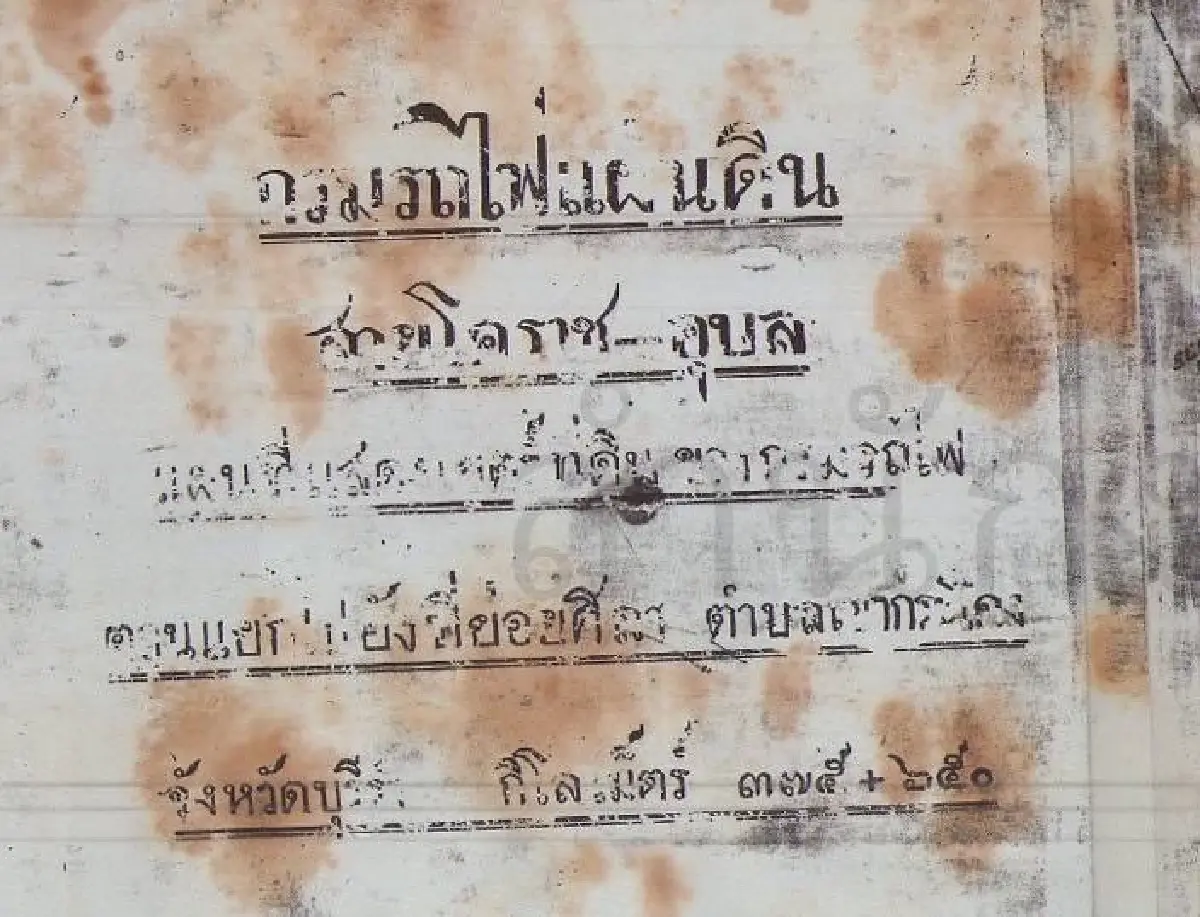 กรมรถไฟแผ่นดิน
สายโคราช–อุบล
แผนที่แสดงเขตร์ที่ดินของกรมรถไฟ
ตอนแยกไปยังที่ย่อยศิลา ตำบลเขากระโดง
จังหวัดบุรีรัมย์ กิโลเม็ตร์ ๓๗๕+๖๕๐